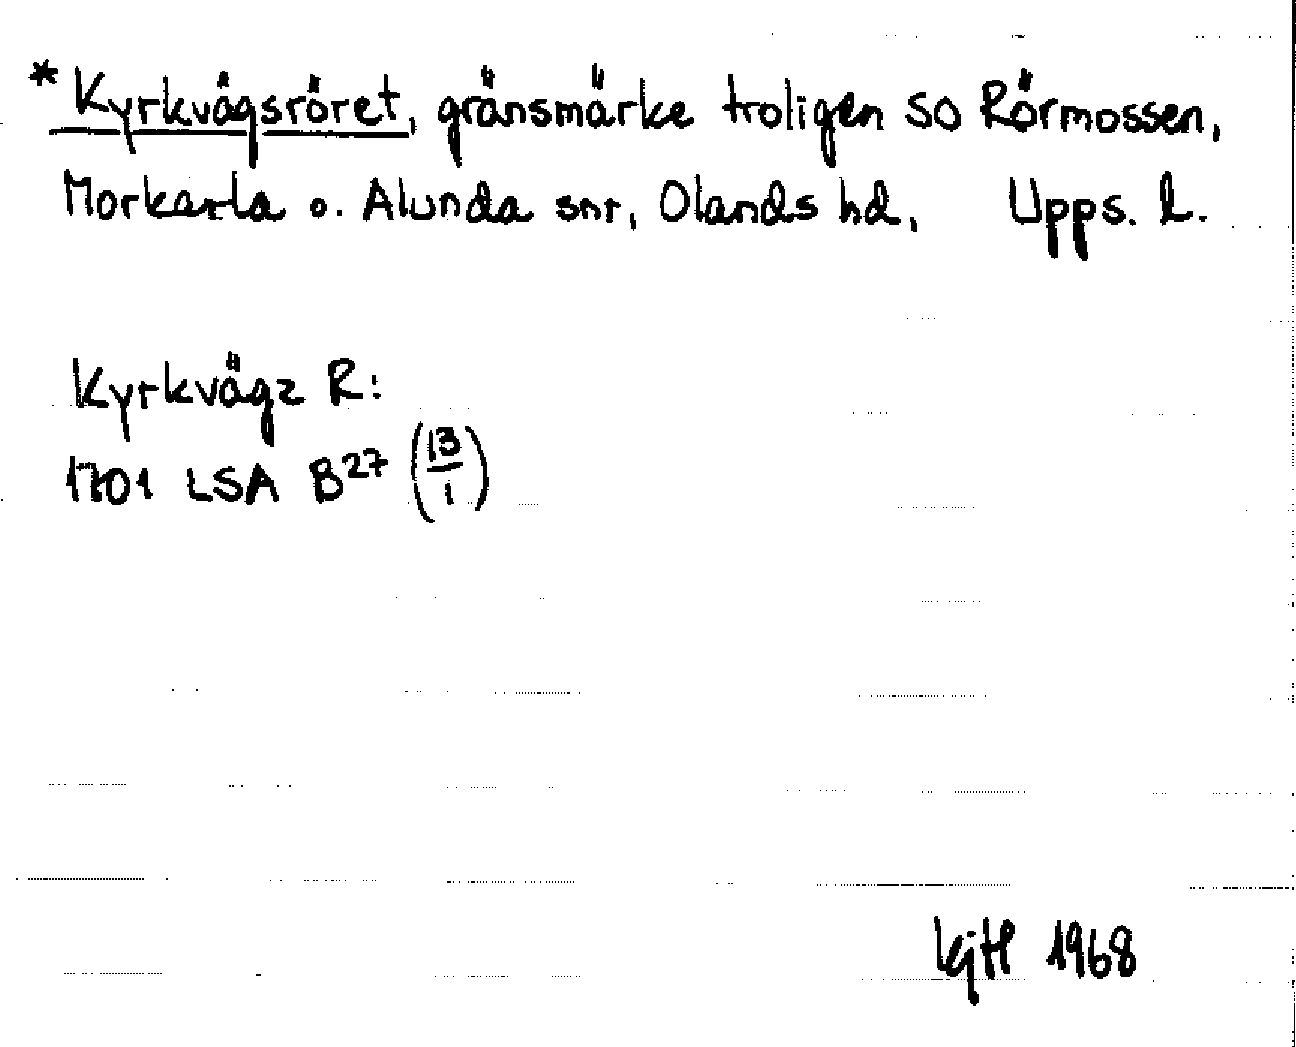 *Kyrkvägsröret, gränsmärke troligen SO Rörmossen,
Morkarla o. Alunda snr, Olands hd, Upps. l.
Kyrkvägz R:
1701 LSA B27 (13/1)
KjH 1968